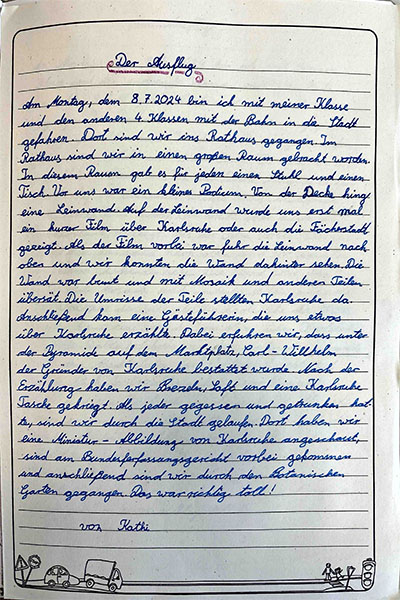 Der Ausflug
Am Montag, dem 8.7.2024 bin ich mit meiner Klasse
und den anderen 4. Klassen mit der Bahn in die Stadt
gefahren. Dort sind wir ins Rathaus gegangen. Im
Rathaus sind wir in einen großen Raum gebracht worden.
In diesem Raum gab es für jeden einen Stuhl und einen
Tisch. Vor uns war ein kleines Podium. Von der Decke hing
eine Leinwand. Auf der Leinwand wurde uns erst mal
ein kurzer Film über Karlsruhe oder auch die Fächerstadt
gezeigt. Als der Film vorbei war fuhr die Leinwand nach
oben und wir konnten die Wand dahinter sehen. Die
Wand war bunt und mit Mosaik und anderen Teilen
übersät. Die Umrisse der Teile stellten Karlsruhe da.
Anschließend kam eine Gästeführerin, die uns etwas
über Karlsruhe erzählte. Dabei erfuhren wir, dass unter
der Pyramide auf dem Marktplatz, Carl-Willhelm
der Gründer von Karlsruhe bestattet wurde. Nach der
Erzählung haben wir Brezeln, Saft und eine Karlsruhe
Tasche gekriegt. Als jeder gegessen und getrunken hat-
te, sind wir durch die Stadt gelaufen. Dort haben wir
eine Minister-Abbildung von Karlsruhe angeschaut,
sind am Bundesferfassungsgericht vorbei gekommen
und anschließend sind wir durch den Botanischen
Garten gegangen. Das war richtig toll!
von Kathi